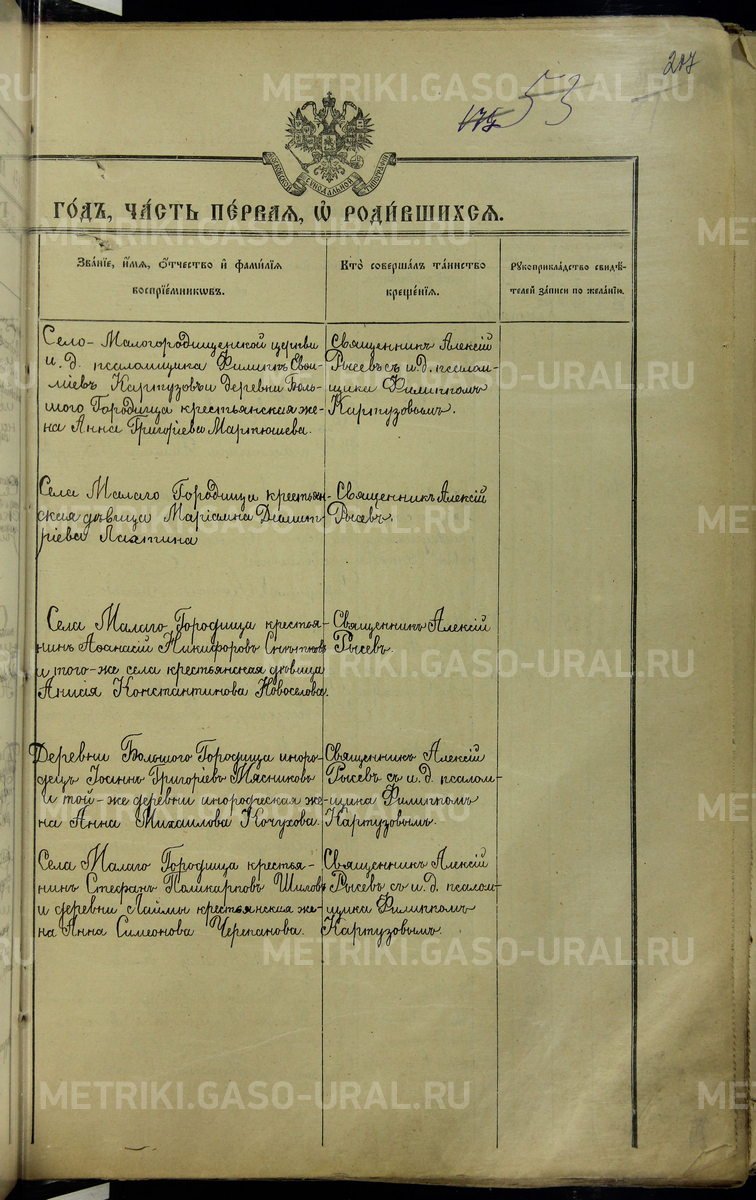 207
175
53
МОСКОВСКОЙ СѴНОДАЛЬНОЙ ТИПОГРАФІИ
ГО́ДЪ, ЧА́СТЬ ПЕ́РВАѦ, Ѿ РОДИ́ВШИХСѦ.
Зва́нїе, и́мѧ, о́тчество и фами́лїѧ
воспрїе́мникѡвъ.
Кто̀ соверша́лъ та́инство
креще́нїѧ.
Рꙋкоприкла́дство свидѣ́-
телей за́писи по жела́нїю.
Село-Малогородищенской церкви
и. д. псаломщика Филиппъ
ліевъ Картузовъ и деревни Боль-
шого Городища крестьянская же-
на Анна Григоріева Мартюшева.
Священникъ Алексій
Рысевъ съ и. д. псалом-
щика Филиппомъ
Картузовымъ.
Села Малаго Городища крестьян-
ская дѣвица Маріамна Димит-
ріева Лаптина
Священникъ Алексій
Рысевъ.
Села Малаго Городища крестья-
нинъ Аѳанасій Никифоровъ
и того-же села крестьянская дѣвица
Анисія Константинова Новоселова.
Священникъ Алексій
Рысевъ.
Деревни Большого Городища иноро-
децъ Іоаннъ Григоріевъ Мясниковъ
и той-же деревни инородческая же-
на Анна Михаилова Кочухова.
Священникъ Алексій
Рысевъ съ и. д. псалом-
щика Филиппомъ
Картузовымъ.
Села Малаго Городища крестья-
нинъ Стефанъ Поликарповъ Шиловъ
и деревни Лаймы крестьянская же-
на Анна Симеонова Черепанова.
Священникъ Алексій
Рысевъ съ и. д. псалом-
щика Филиппомъ
Картузовымъ.
METRIKI.GASO-URAL.RU